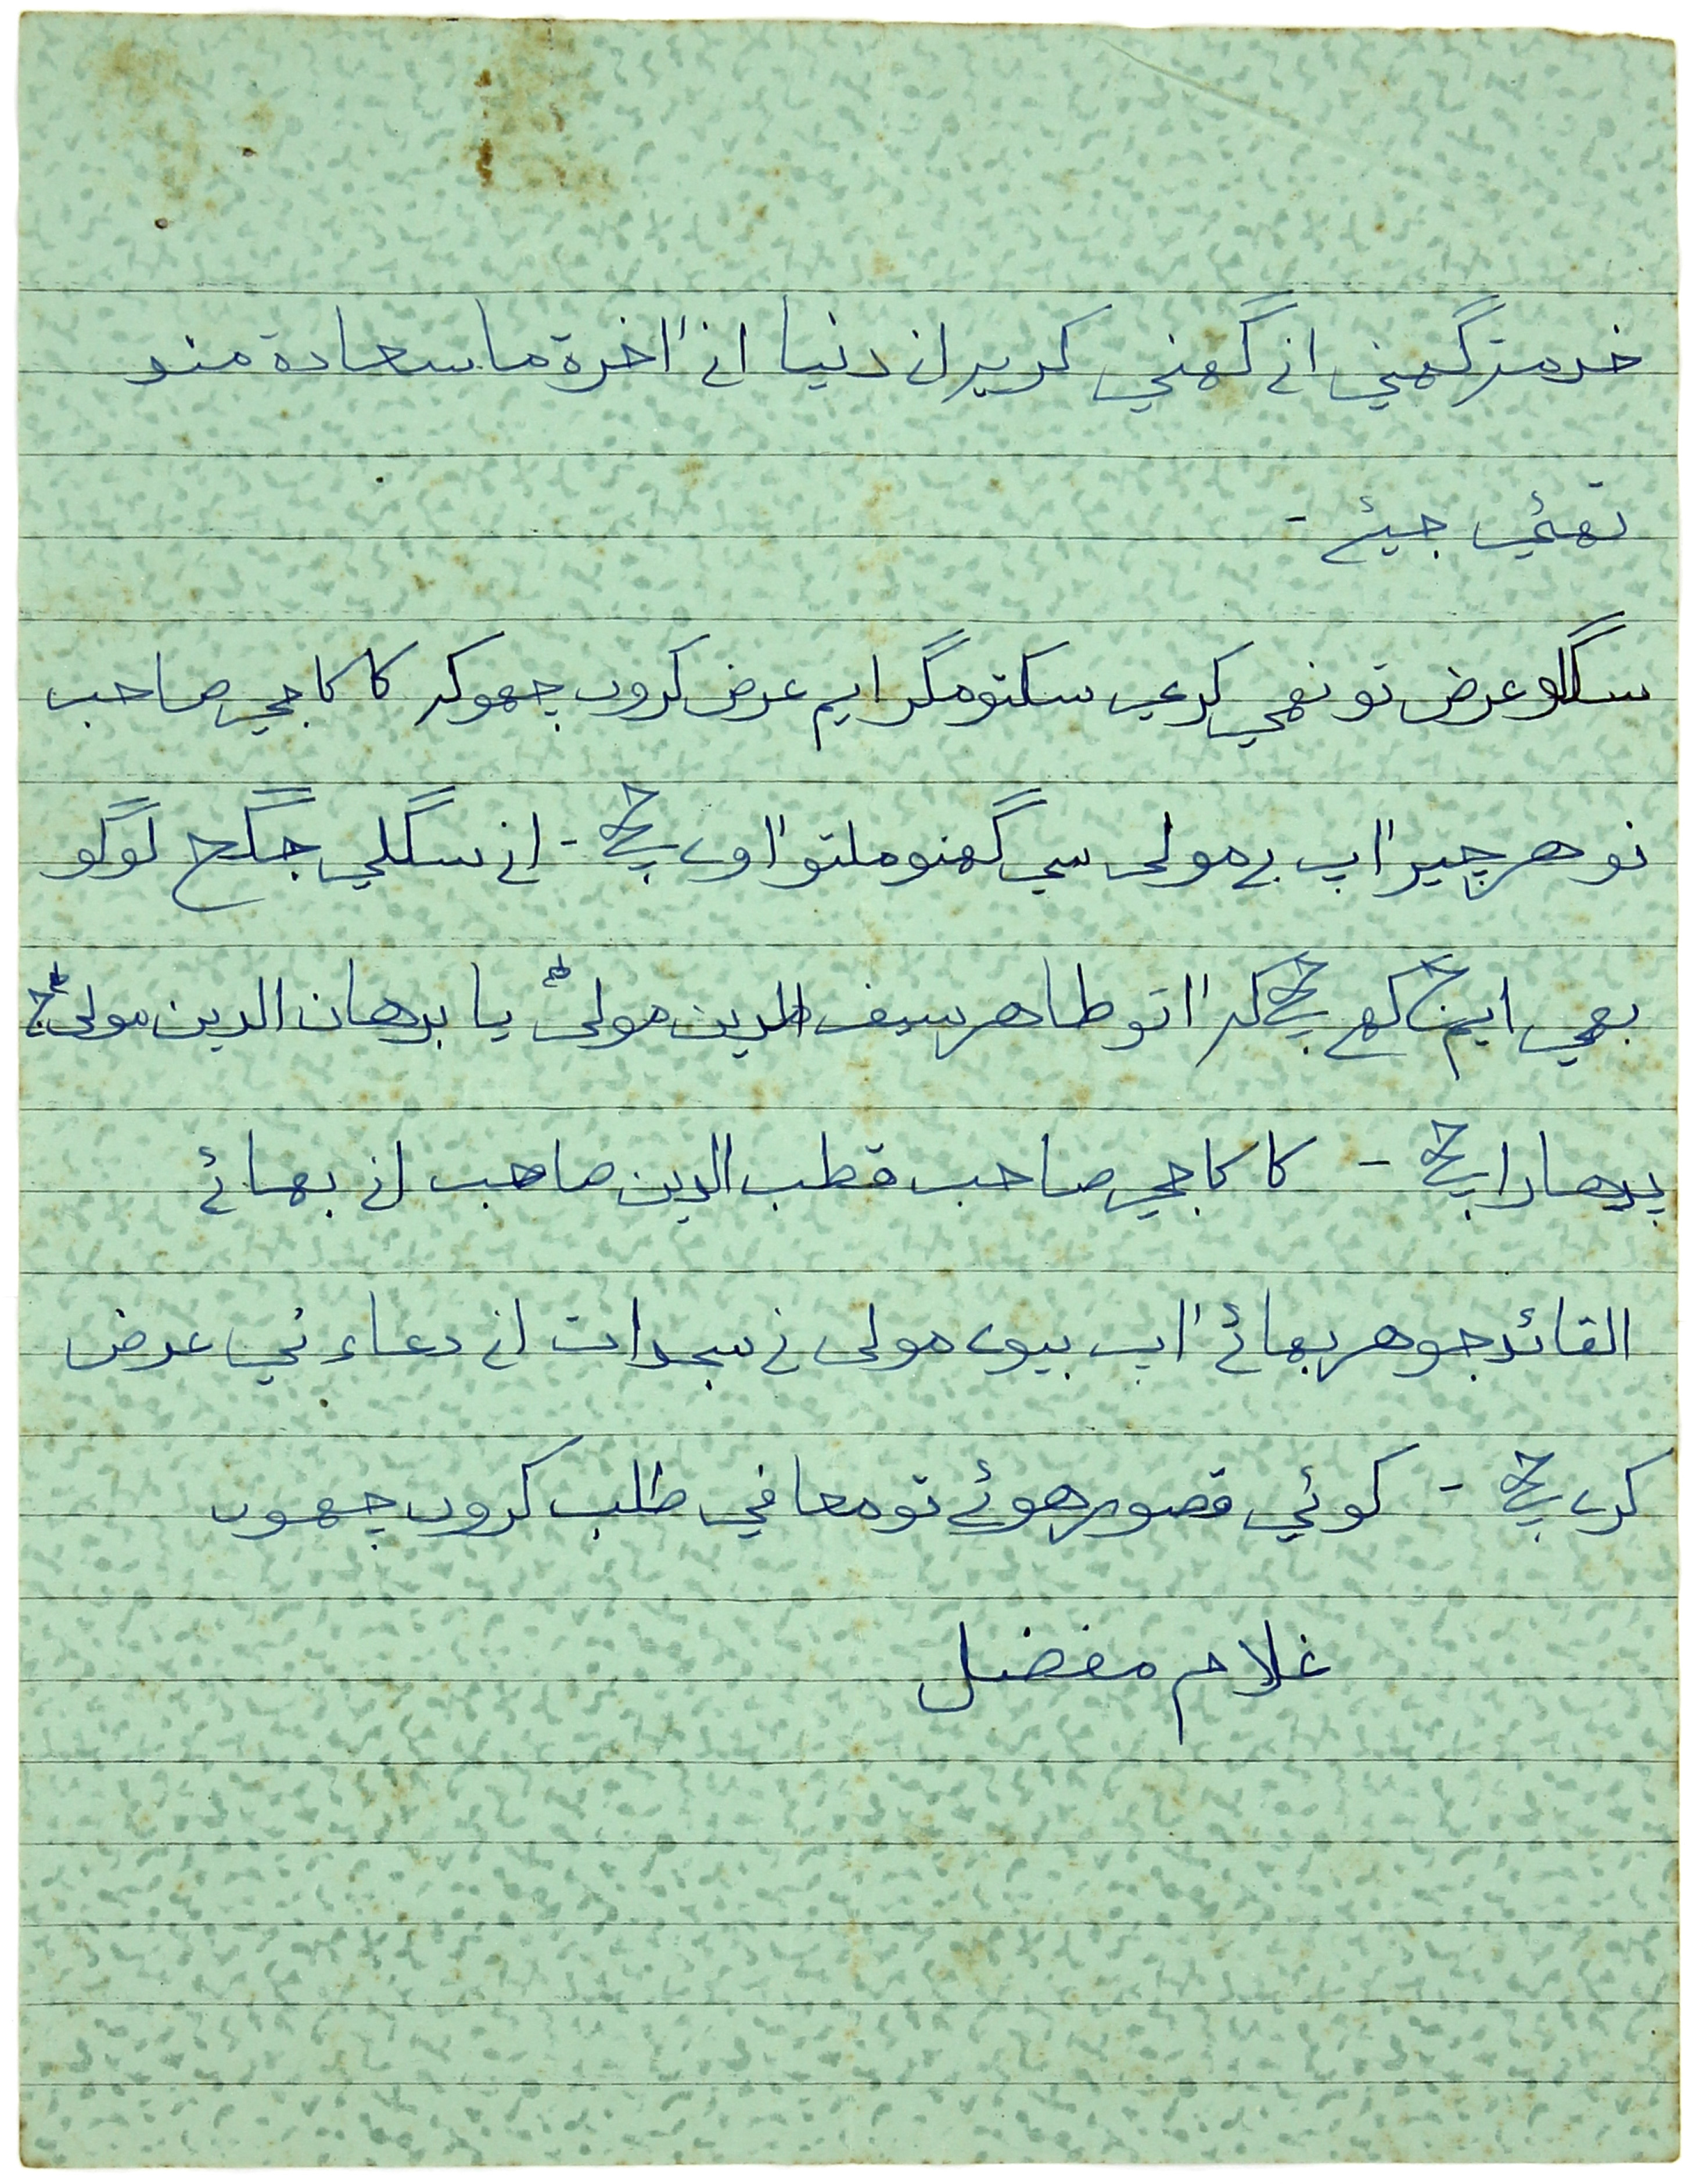 خدمة گهني انے گهني كريے انے دنيا انے اٰخرة ما سعادة منو
تهئي جيئے -
سگلو عرض تو نهي كري سكتو مگر ايم عرض كروں چھو كه كاكاجي صاحب
نو هر چيز اٰپ بے مولى سي گهنو ملتو اٰوے چھے - انے سگلي جگہ لوگو
بهي ايمج كهے چھے كه اٰ تو طاهر سيف الدين مولىٰ يا برهان الدين مولىٰ ج
پدهارا چھے - كاكاجي صاحب قطب الدين صاحب انے بهائے
القائدجوهر بهائے اٰپ بيوے مولى نے سجدات انے دعاء ني عرض
كرے چھے - كوئي قصور هوئے تو معافي طلب كروں چھوں
غلام مفضل